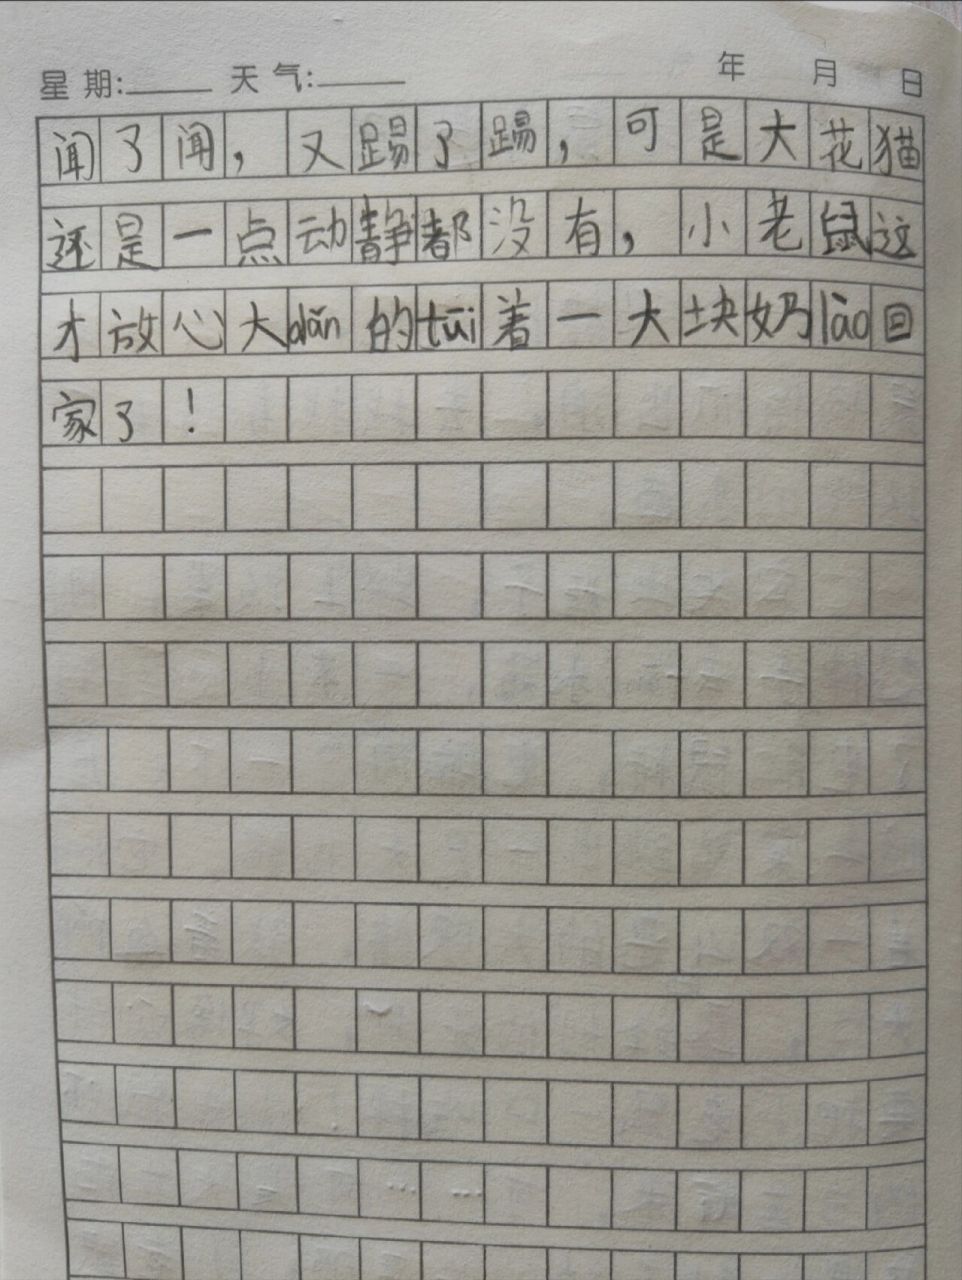 星期:______ 天气:______ 年 月 日
闻了闻，又踢了踢，可是大花猫
还是一点动静都没有，小老鼠这
才放心大dǎn的tūi着一大块奶lào回
家了！